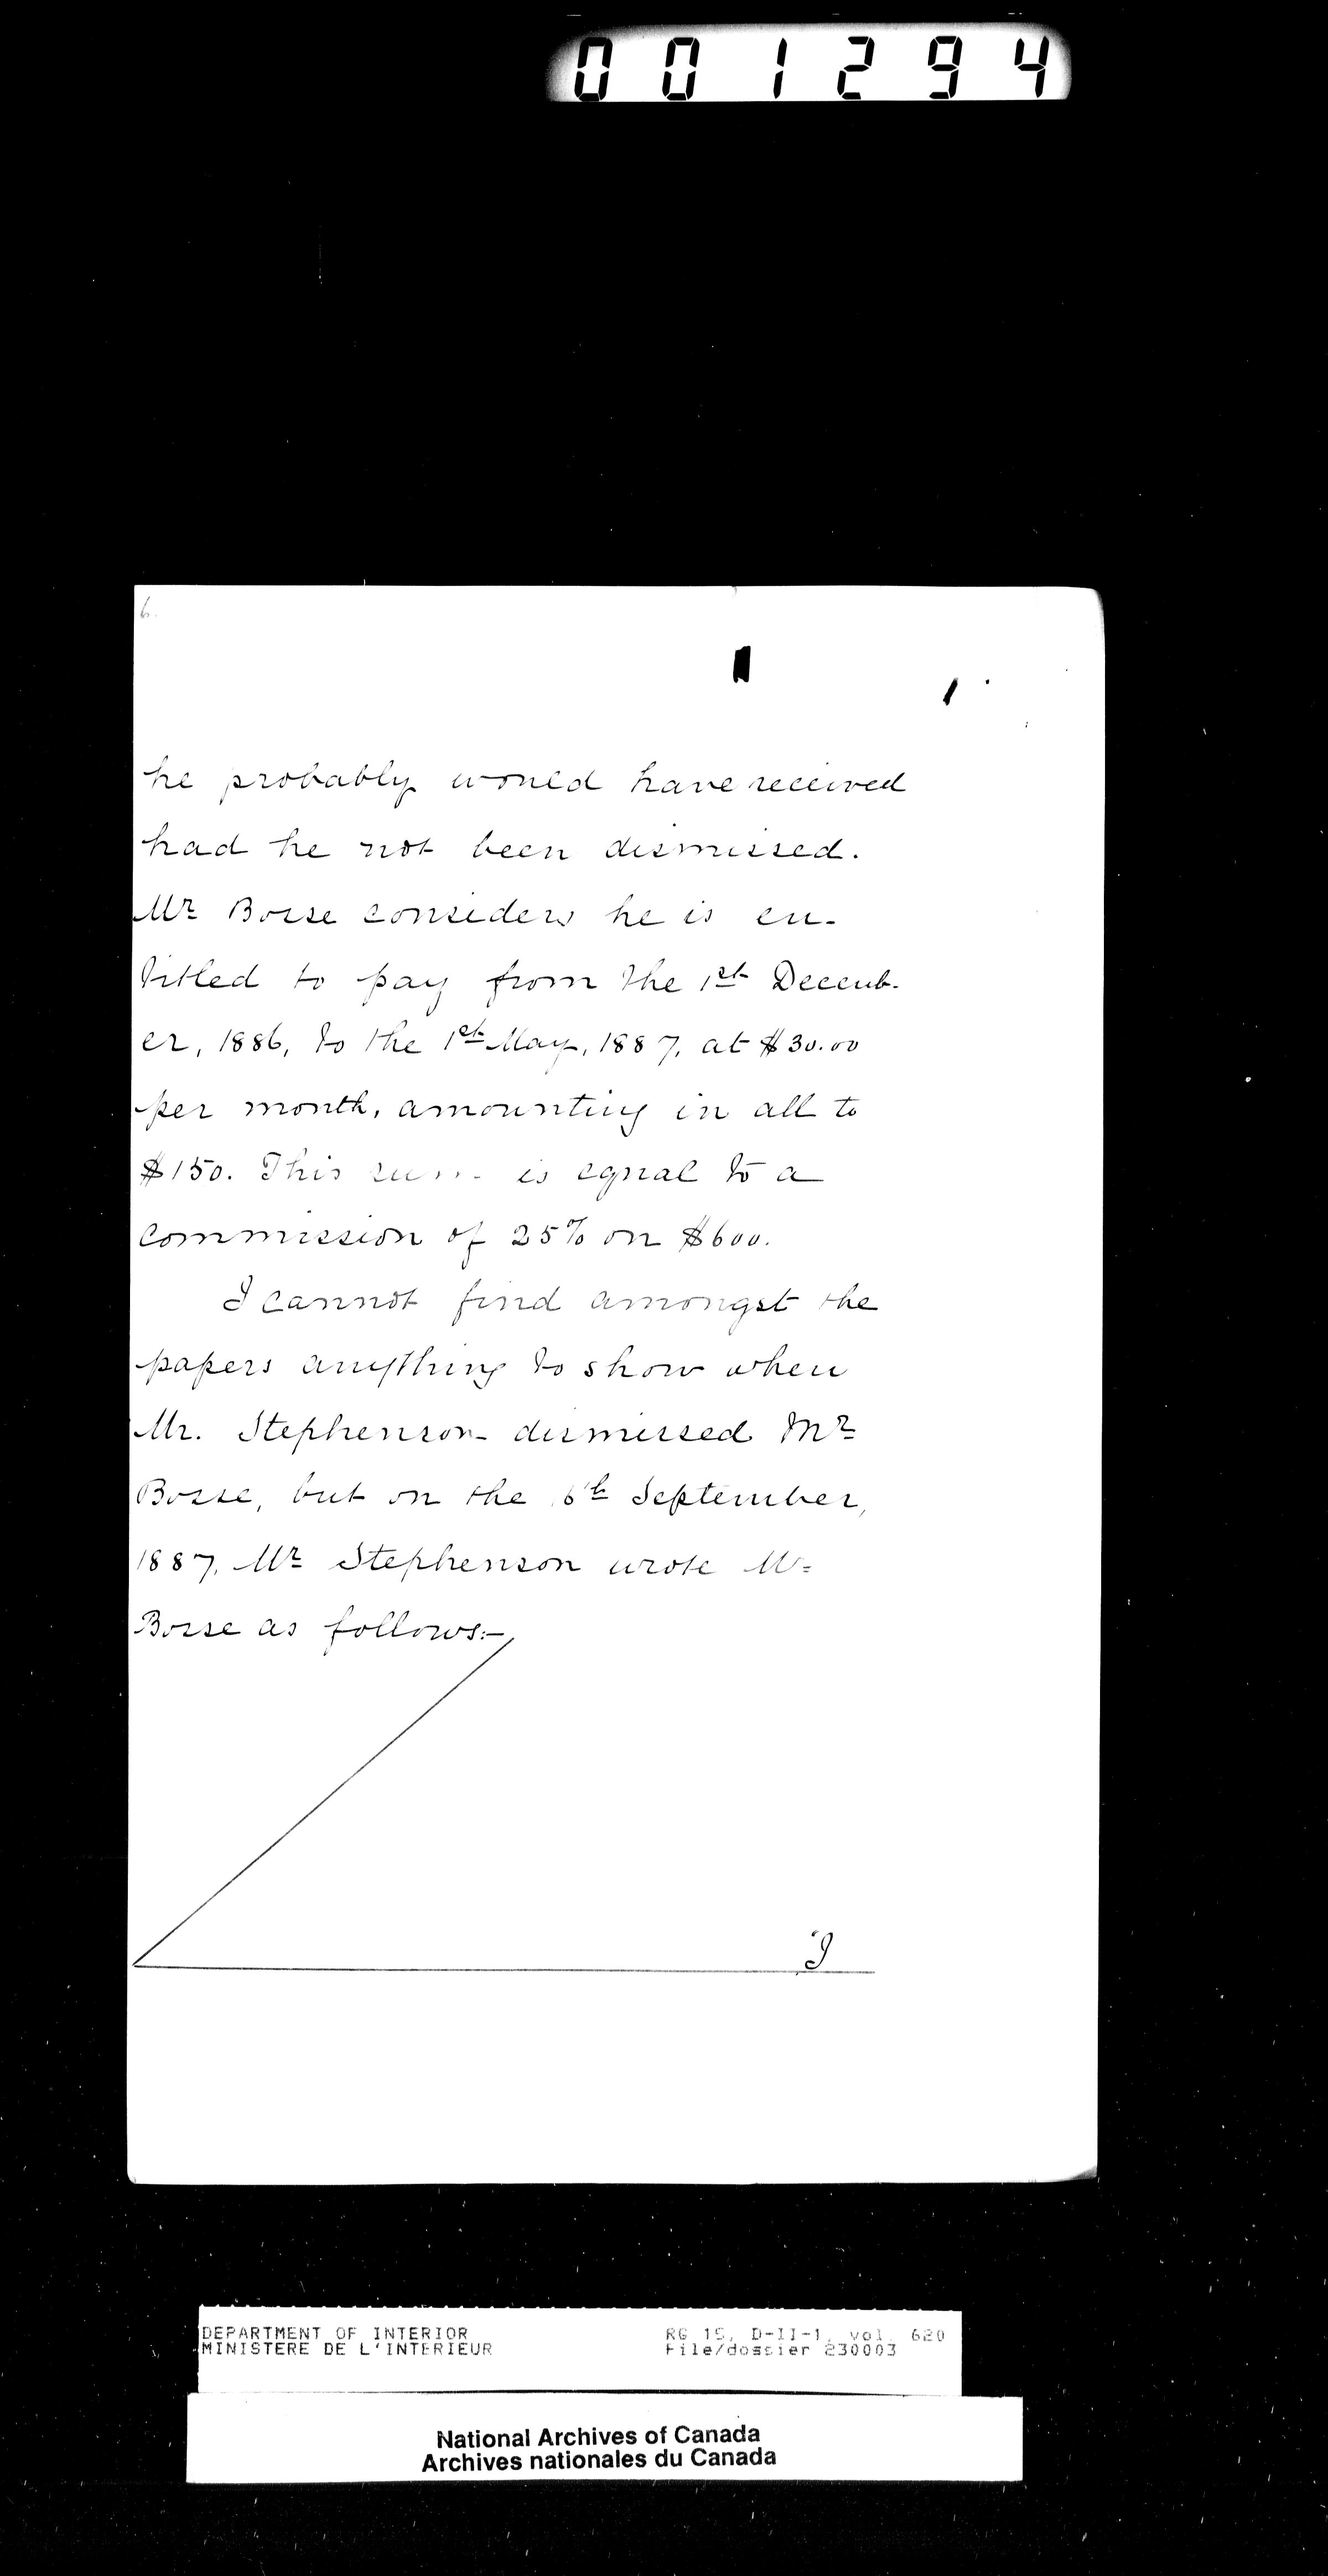 001294
6.
he probably would have received
had he not been dismissed.
Mr Bosse considers he is en-
titled to pay from the 1st Decemb-
er, 1886, to the 1st May, 1887, at $30.00
per month, amounting in all to
$150. This sum is equal to a
commission of 25% on $600.
I cannot find amongst the
papers anything to show when
Mr. Stephenson dismissed Mr
Bosse, but on the 6th September,
1887, Mr Stephenson wrote Mr
Bosse as follows:-
I
DEPARTMENT OF INTERIOR RG 15, D-II-1, vol. 620
MINISTERE DE L'INTERIEUR File/dossier 230003
National Archives of Canada
Archives nationales du Canada